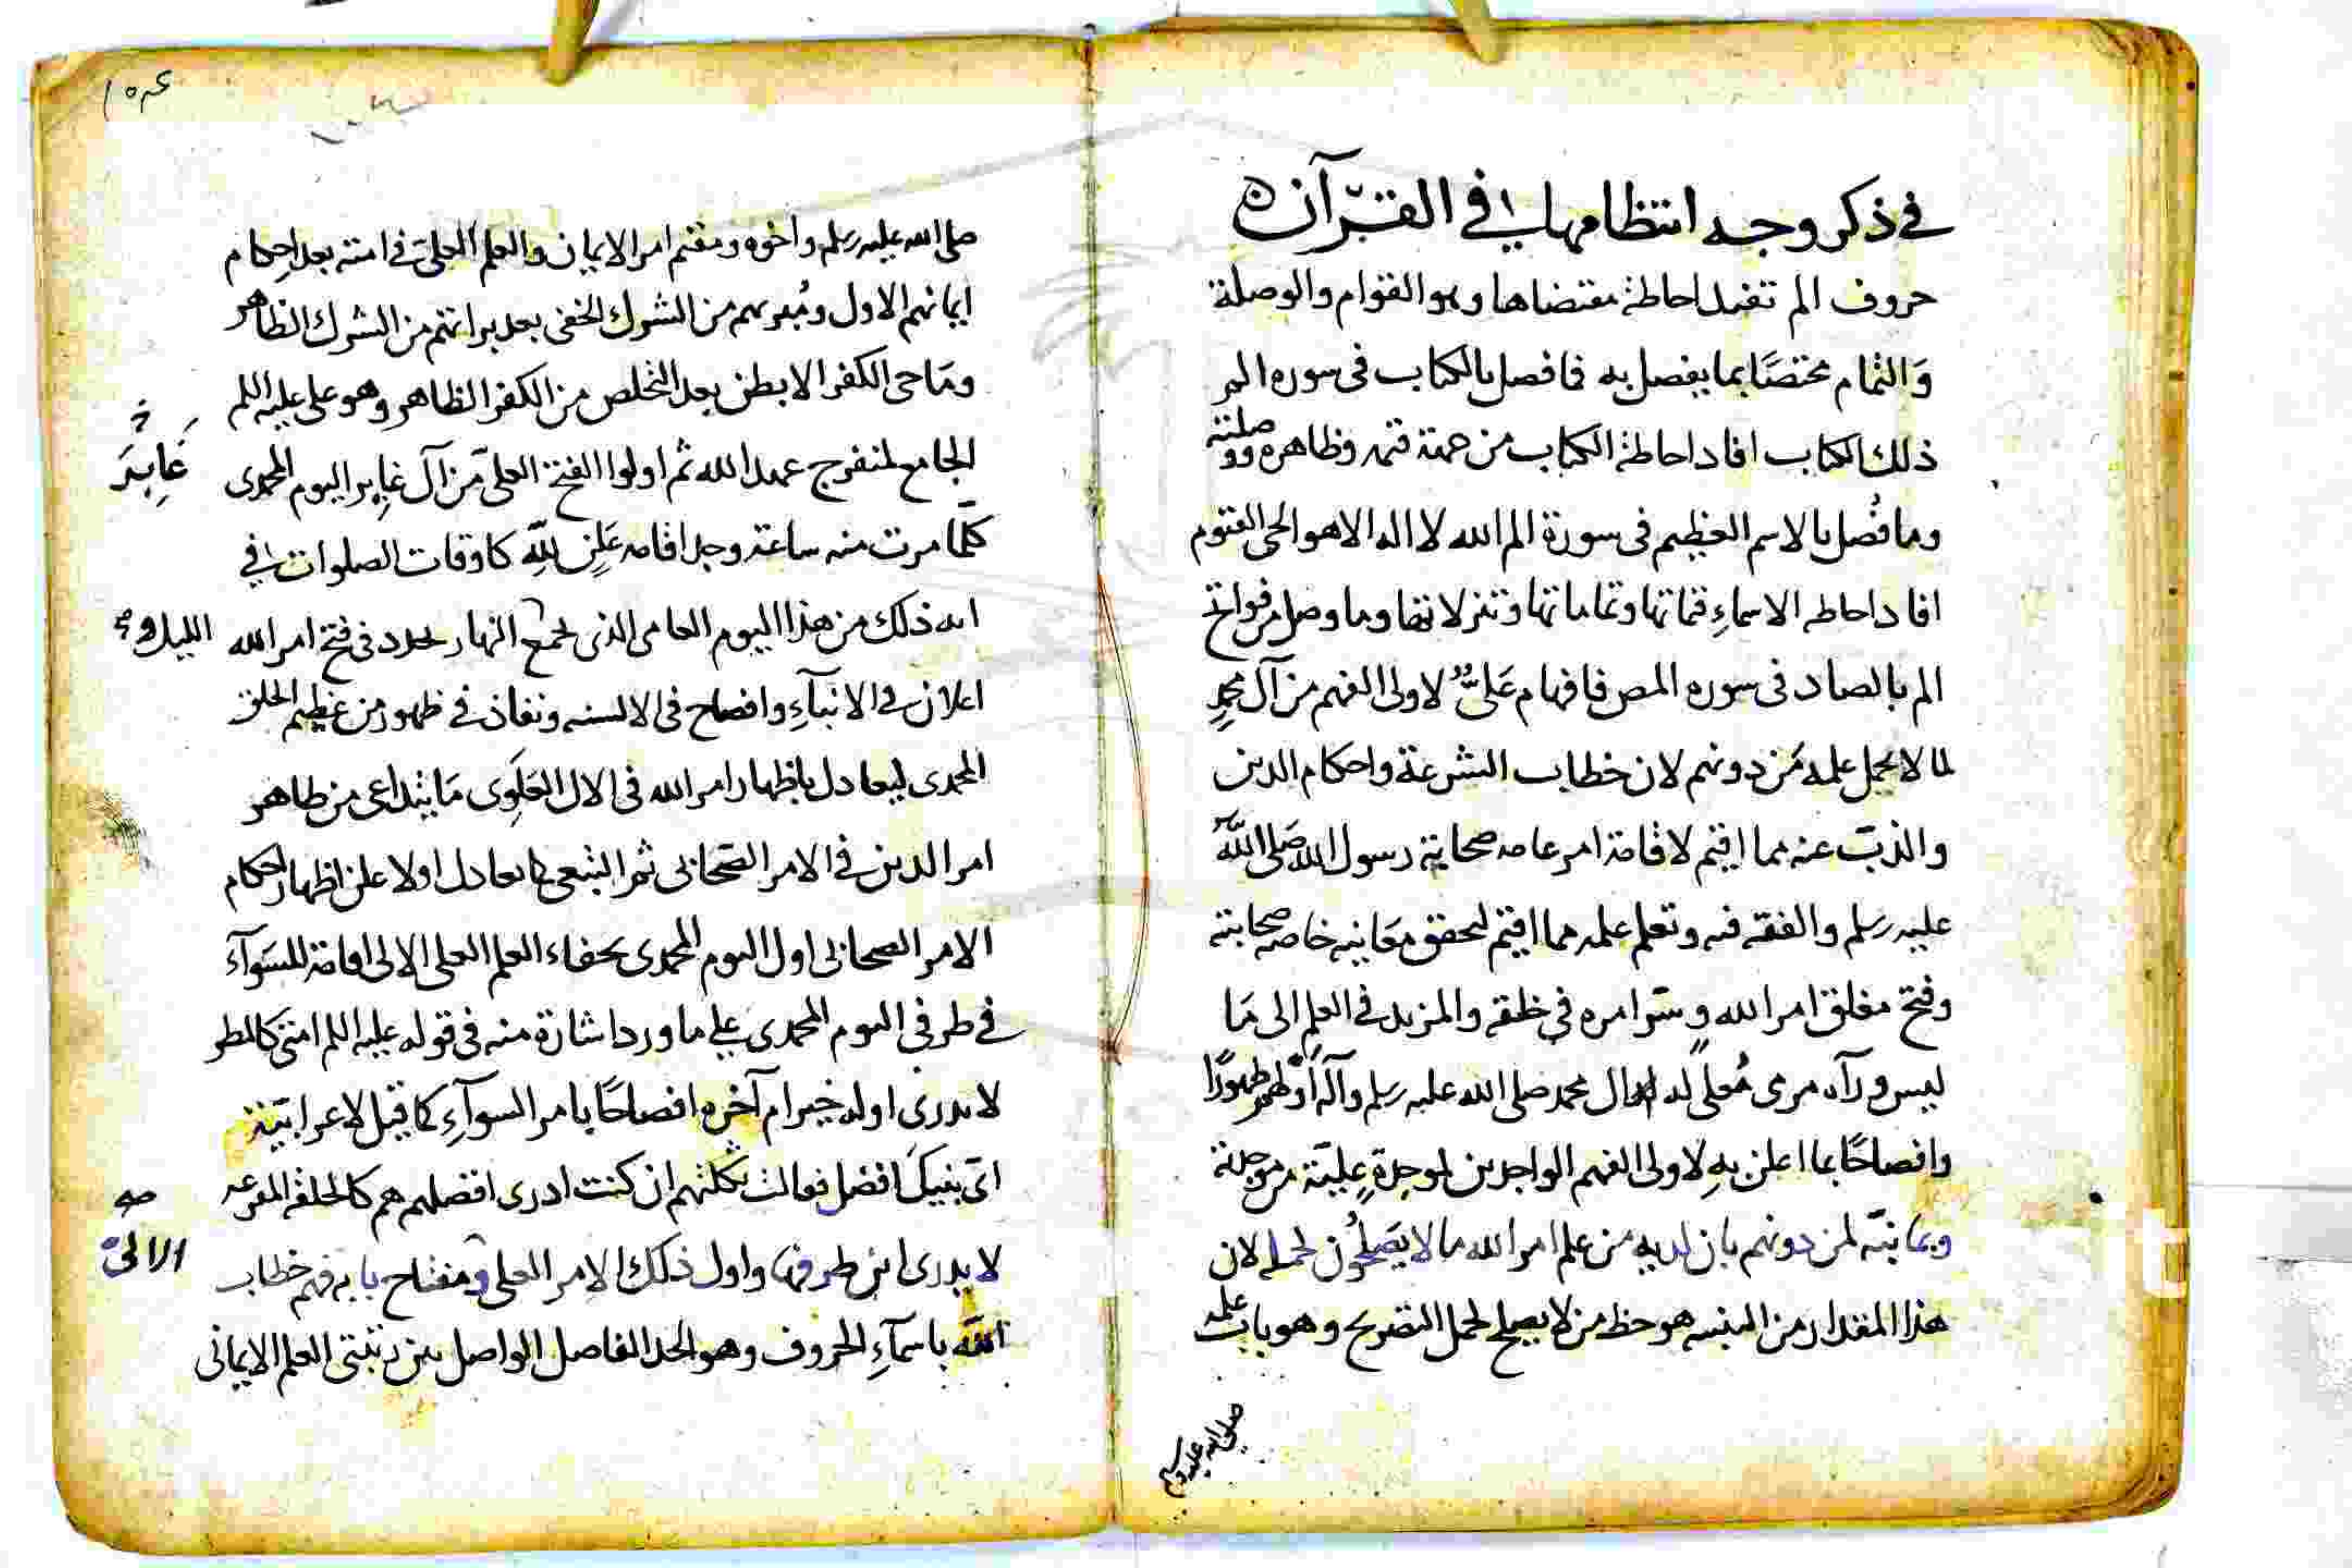 في ذكر وجه انتظامها في القرآن
حروف الم تفيد احاطة مقتضاها وهو القوام والوصلة
والتمام مختصا بما يفصل به فما فصل بالكتاب في سوره الم
ذلك الكتاب افاد احاطة الكتاب من وظاهره ووصلته
وما فصل بالاسم العظيم في سورة الم الله لا اله الا هو الحي القيوم
افاد احاطه الاسماء وتماماتها وتنزلاتها وما وصل من فواتح
الم بالصاد في سوره المص فافهام علي لاولى الفهم من آل محمد
لما لا يحمل علمه من دونهم لان خطاب الشرعة واحكام الدين
والذب عنه مما اقيم لاقامة امر عامه صحابة رسول الله صلى الله
عليه وسلم والفقه فيه وتعلم علمه مما اقيم لتحقق معانيه خاصه صحابته
وفتح مغلق امر الله وسر امره في خلقه والمزيد في العلم الى ما
ليس ورآه مرمى لال محمد صلى الله عليه وسلم وآله ظهورا
وافصاحا بما اعلن به لاولى الفهم الواجدين لموجدة علية
لمن دونهم بان لديه من علم امر الله ما لا يصلحون لحمله لان
هذا المقدار من هو حظ من لا يصلح لحمل التصريح وهو باب علمه
صلى الله عليه وسلم
١٥٤
صلى الله عليه وسلم واخوه ومقيم امر الايمان والعلم العلى في امته بعد احكام
ايمانهم الاول ومبريهم من الشرك الخفى بعد براتهم من الشرك الظاهر
وماحى الكفر الابطن بعد التخلص من الكفر الظاهر وهو على عليه السلم
الجامع لمنفرج عمد الله ثم اولوا الفتح العلى من آل غابر اليوم المحمدى
غابر
كلما مرت منه ساعة وجد اقامه علن لله كاوقات الصلوات في
انه ذلك من هذا اليوم العامى الذى يجمع النهار في فتح امر الله
الليل و
اعلان في الانبآء وافصاح في الالسنه ونفاذ في ظهور من عظيم الخلق
المحمدى ليعادل باظهار امر الله في الال العلوى ما يتداعى من ظاهر
امر الدين في الامر الصحابى ثم التبعى كما يعادل اولا علن اظهار احكام
الامر الصحابى اول اليوم المحمدى بخفاء العلم العلى الالى اقامة للسوآء
في طرفى اليوم المحمدى على ما ورد اشارة منه في قوله عليه السلم امتى كالمطر
لا يدرى اوله خير ام آخره افصاحا بامر السوآء كما قيل لاعرابية
اى بنيك افضل فقالت ثكلتهم ان كنت ادرى افضلهم هم كالحلقة المفرغه
لا يدرى اين طرفها واول ذلك الامر العلى ومفتاح بابه فهم خطاب
صه
الالى
الله باسمآء الحروف وهو الحد الفاصل الواصل بين رتبتى العلم الايمانى